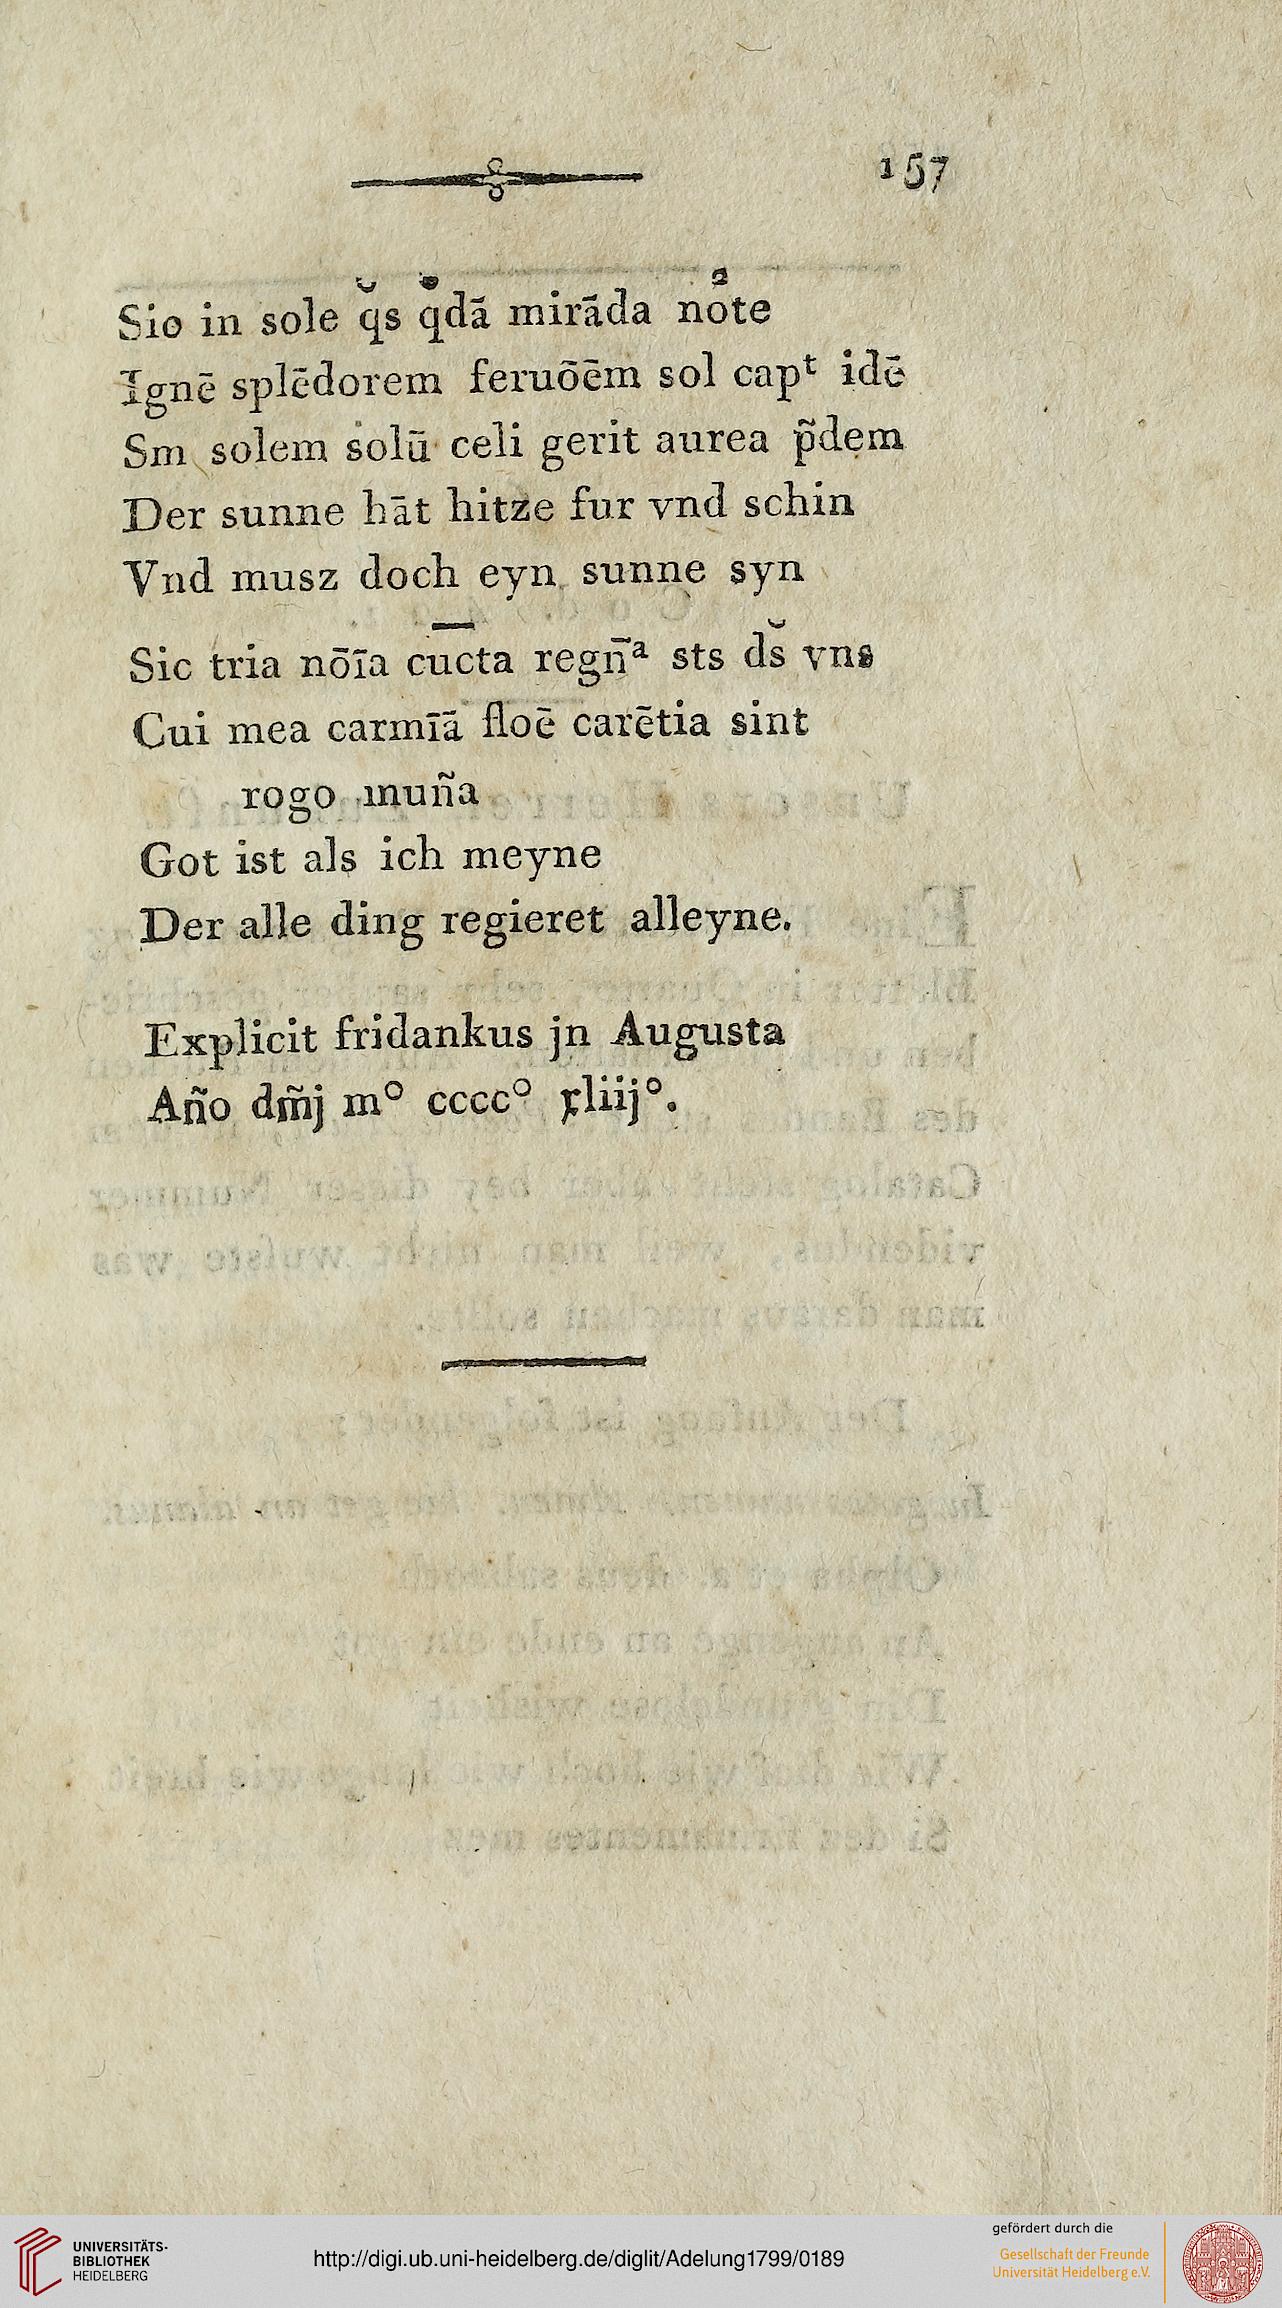 157
Sio in sole q̆s q̆dā mirāda no᷒te
Ignē splēdorem feruōēm sol capᵗ idē
Sm solem solū celi gerit aurea p̃dem
Der sunne hāt hitze fur vnd schin
Vnd musz doch eyn sunne syn
Sic tria nōīa cūcta regn̄ᵃ sts ds̆ vns
Cui mea carmīā floē carētia sint
rogo muña
Got ist als ich meyne
Der alle ding regieret alleyne.
Explicit fridankus jn Augusta
Año dm̃j m° cccc° xliij°.
UNIVERSITÄTS-
BIBLIOTHEK
HEIDELBERG
http://digi.ub.uni-heidelberg.de/diglit/Adelung1799/0189
gefördert durch die
Gesellschaft der Freunde
Universität Heidelberg e.V.